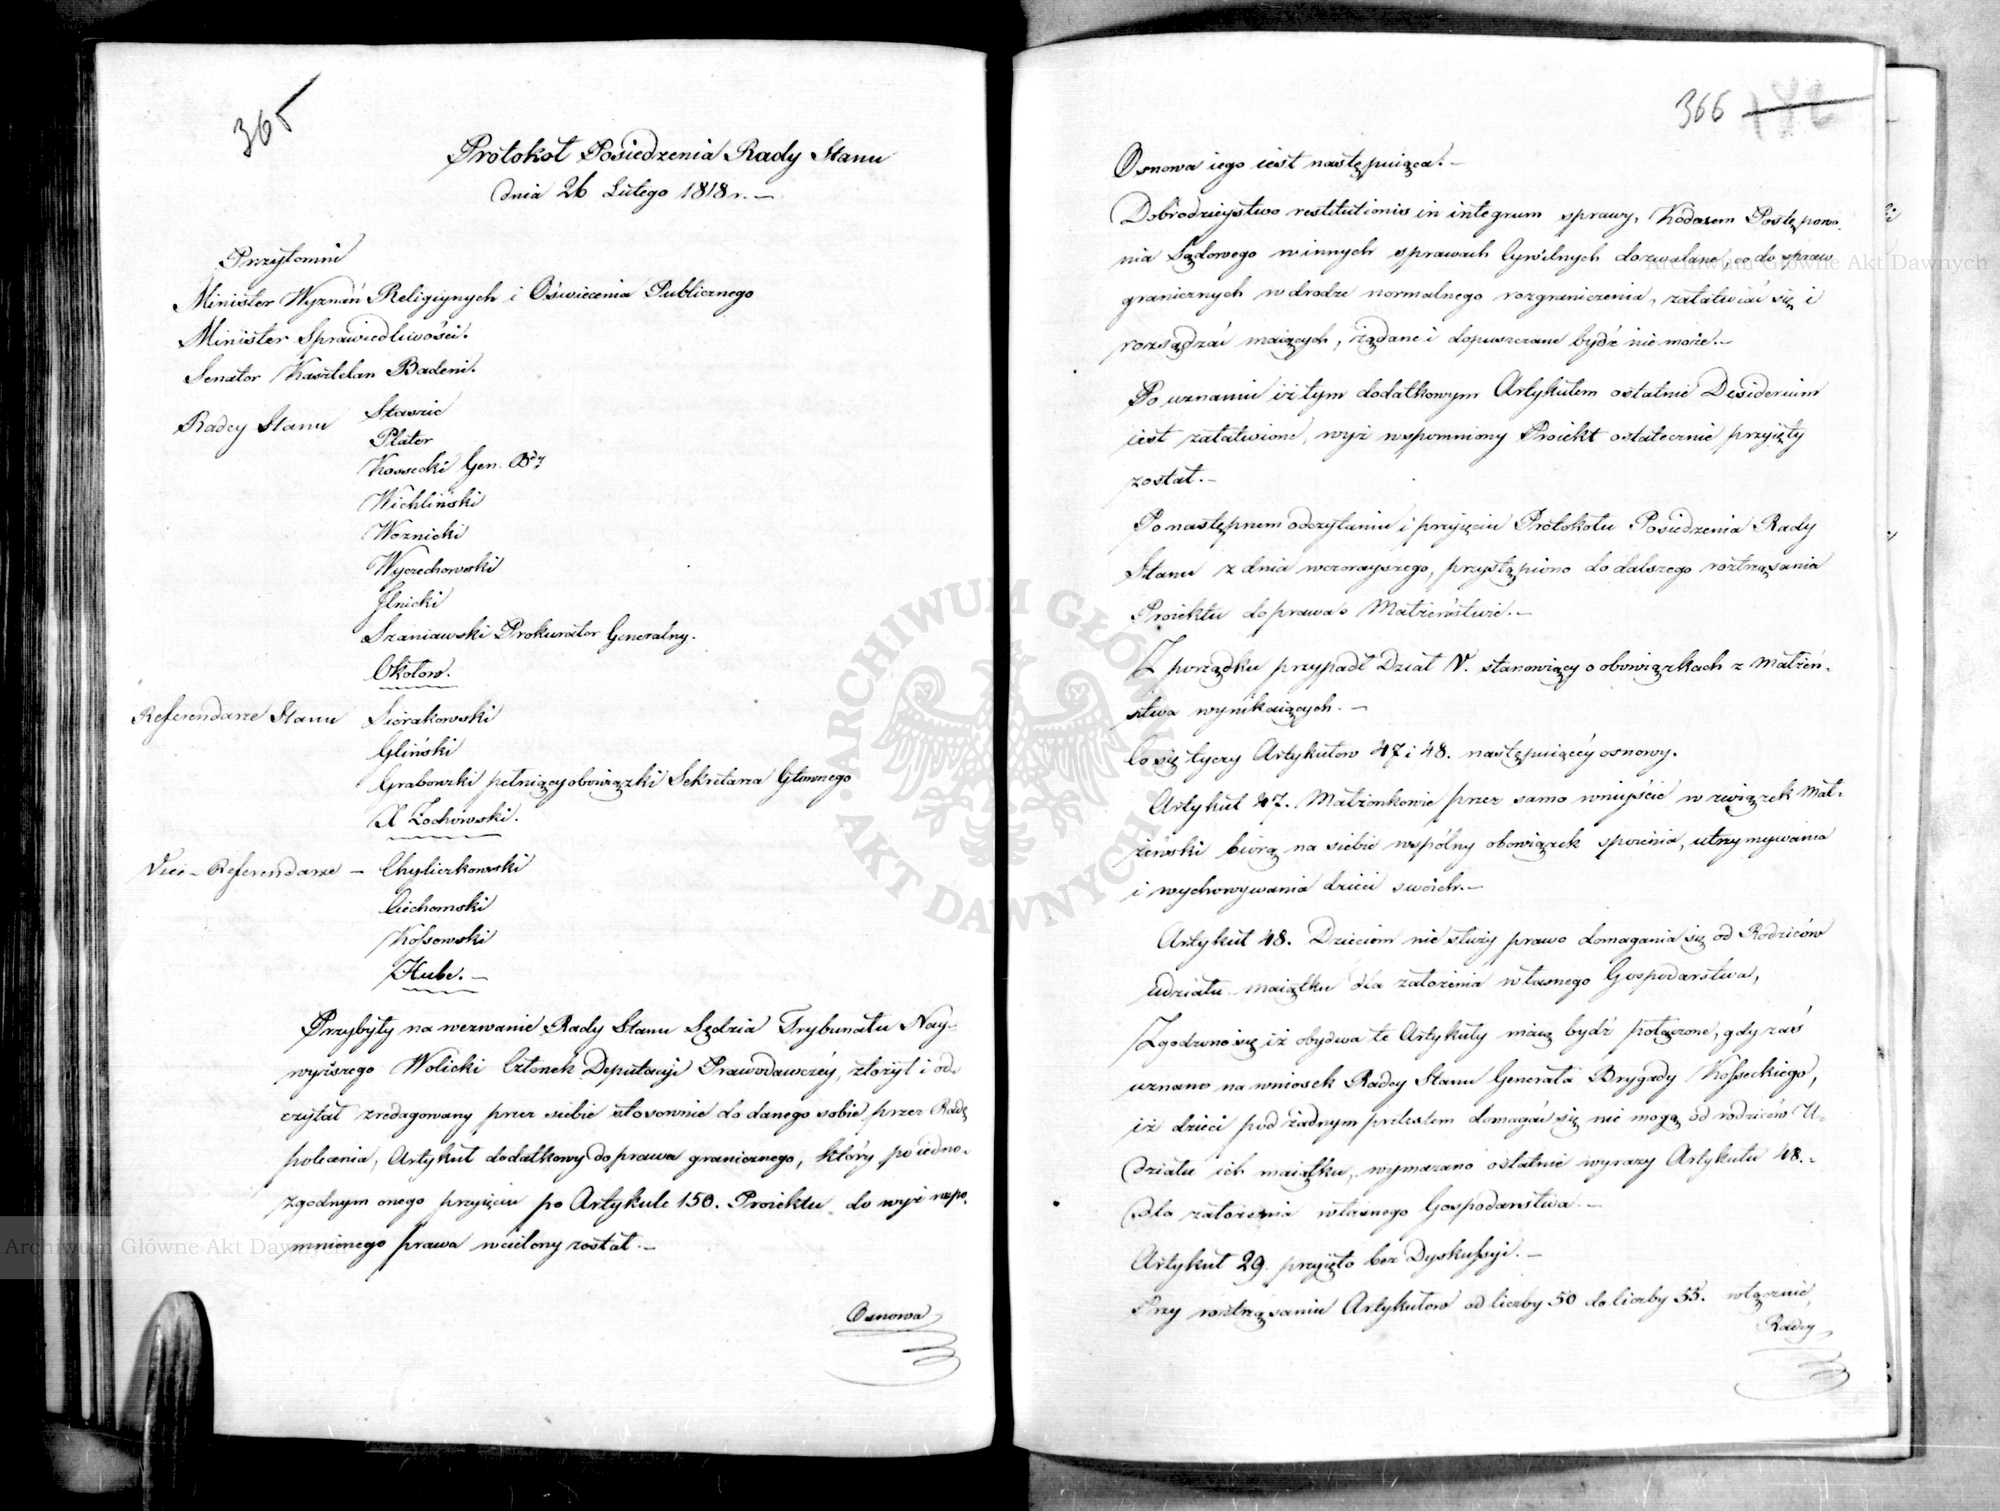 365
Protokół Posiedzenia Rady Stanu
dnia 26 Lutego 1818 r. —
Przytomni
Minister Wyznań Religiynych i Oświecenia Publicznego
Minister Sprawiedliwości.
Senator Kasztelan Badeni.
Radcy Stanu Staszic
Plater
Kossecki Gen. Bdy
Wichliński
Woznicki
Wyczechowski
Ilnicki
Szaniawski Prokurator Generalny.
Okołow.
Referendarze Stanu Sierakowski
Gliński
Grabowski pełniący obowiązki Sekretarza Głownego
X Żochowski.
Vice-Referendarze — Chyliczkowski
Ciechomski
Kossowski
Hube. —
Przybyły na wezwanie Rady Stanu Sędzia Trybunału Nay-
wyższego Wolicki Członek Deputacyi Prawodawczéy, złożył i od-
czytał zredagowany przez siebie stosownie do danego sobie przez Radę
polecenia, Artykuł dodatkowy do prawa granicznego, który po iedno-
zgodnym onego przyięciu po Artykule 150. Proiektu do wyż wspo-
mnionego prawa wcielony został. —
Osnowa
366
Osnowa iego iest następuiąca. —
Dobrodzieystwo restitutionis in integrum sprawy, Kodexem Postępowa-
nia Sądowego w innych sprawach Cywilnych dozwalane, co do spraw
granicznych w drodze normalnego rozgraniczenia, załatwiać się i
rozsądzać maiących, żądane i dopuszczane bydź nie może. —
Po uznaniu iż tym dodatkowym Artykułem ostatnie Desiderium
iest załatwione, wyż wspomniony Proiekt ostatecznie przyięty
został. —
Po następnem odczytaniu i przyięciu Protokołu Posiedzenia Rady
Stanu z dnia wczorayszego, przystąpiono do dalszego roztrząsania
Proiektu do prawa o Małżeństwie. —
Z porządku przypadł Dział V. stanowiący o obowiązkach z Małżeń-
stwa wynikaiących. —
Co się tyczy Artykułow 47 i 48. następuiącéy osnowy.
Artykuł 47. Małżonkowie przez samo wniyście w związek Mał-
żeński biorą na siebie wspólny obowiązek żywienia, utrzymywania
i wychowywania dzieci swoich. —
Artykuł 48. Dzieciom nie służy prawo domagania się od Rodziców
udziału maiątku dla założenia własnego Gospodarstwa,
Zgodzono się iż obydwa te Artykuły maią bydź połączone, gdy zaś
uznano na wniosek Radcy Stanu Generała Brygady Kosseckiego,
iż dzieci pod żadnym pretextem domagać się nie mogą od rodziców U-
działu ich maiątku, wymazano ostatnie wyrazy Artykułu 48. -
dla założenia własnego Gospodarstwa. —
Artykuł 29. przyięto bez Dyskussyi. —
Przy roztrząsaniu Artykułow od liczby 50 do liczby 55. włącznie,
Radcy
ARCHIWUM GŁÓWNE AKT DAWNYCH
Archiwum Główne Akt Dawnych
Archiwum Główne Akt Dawnych